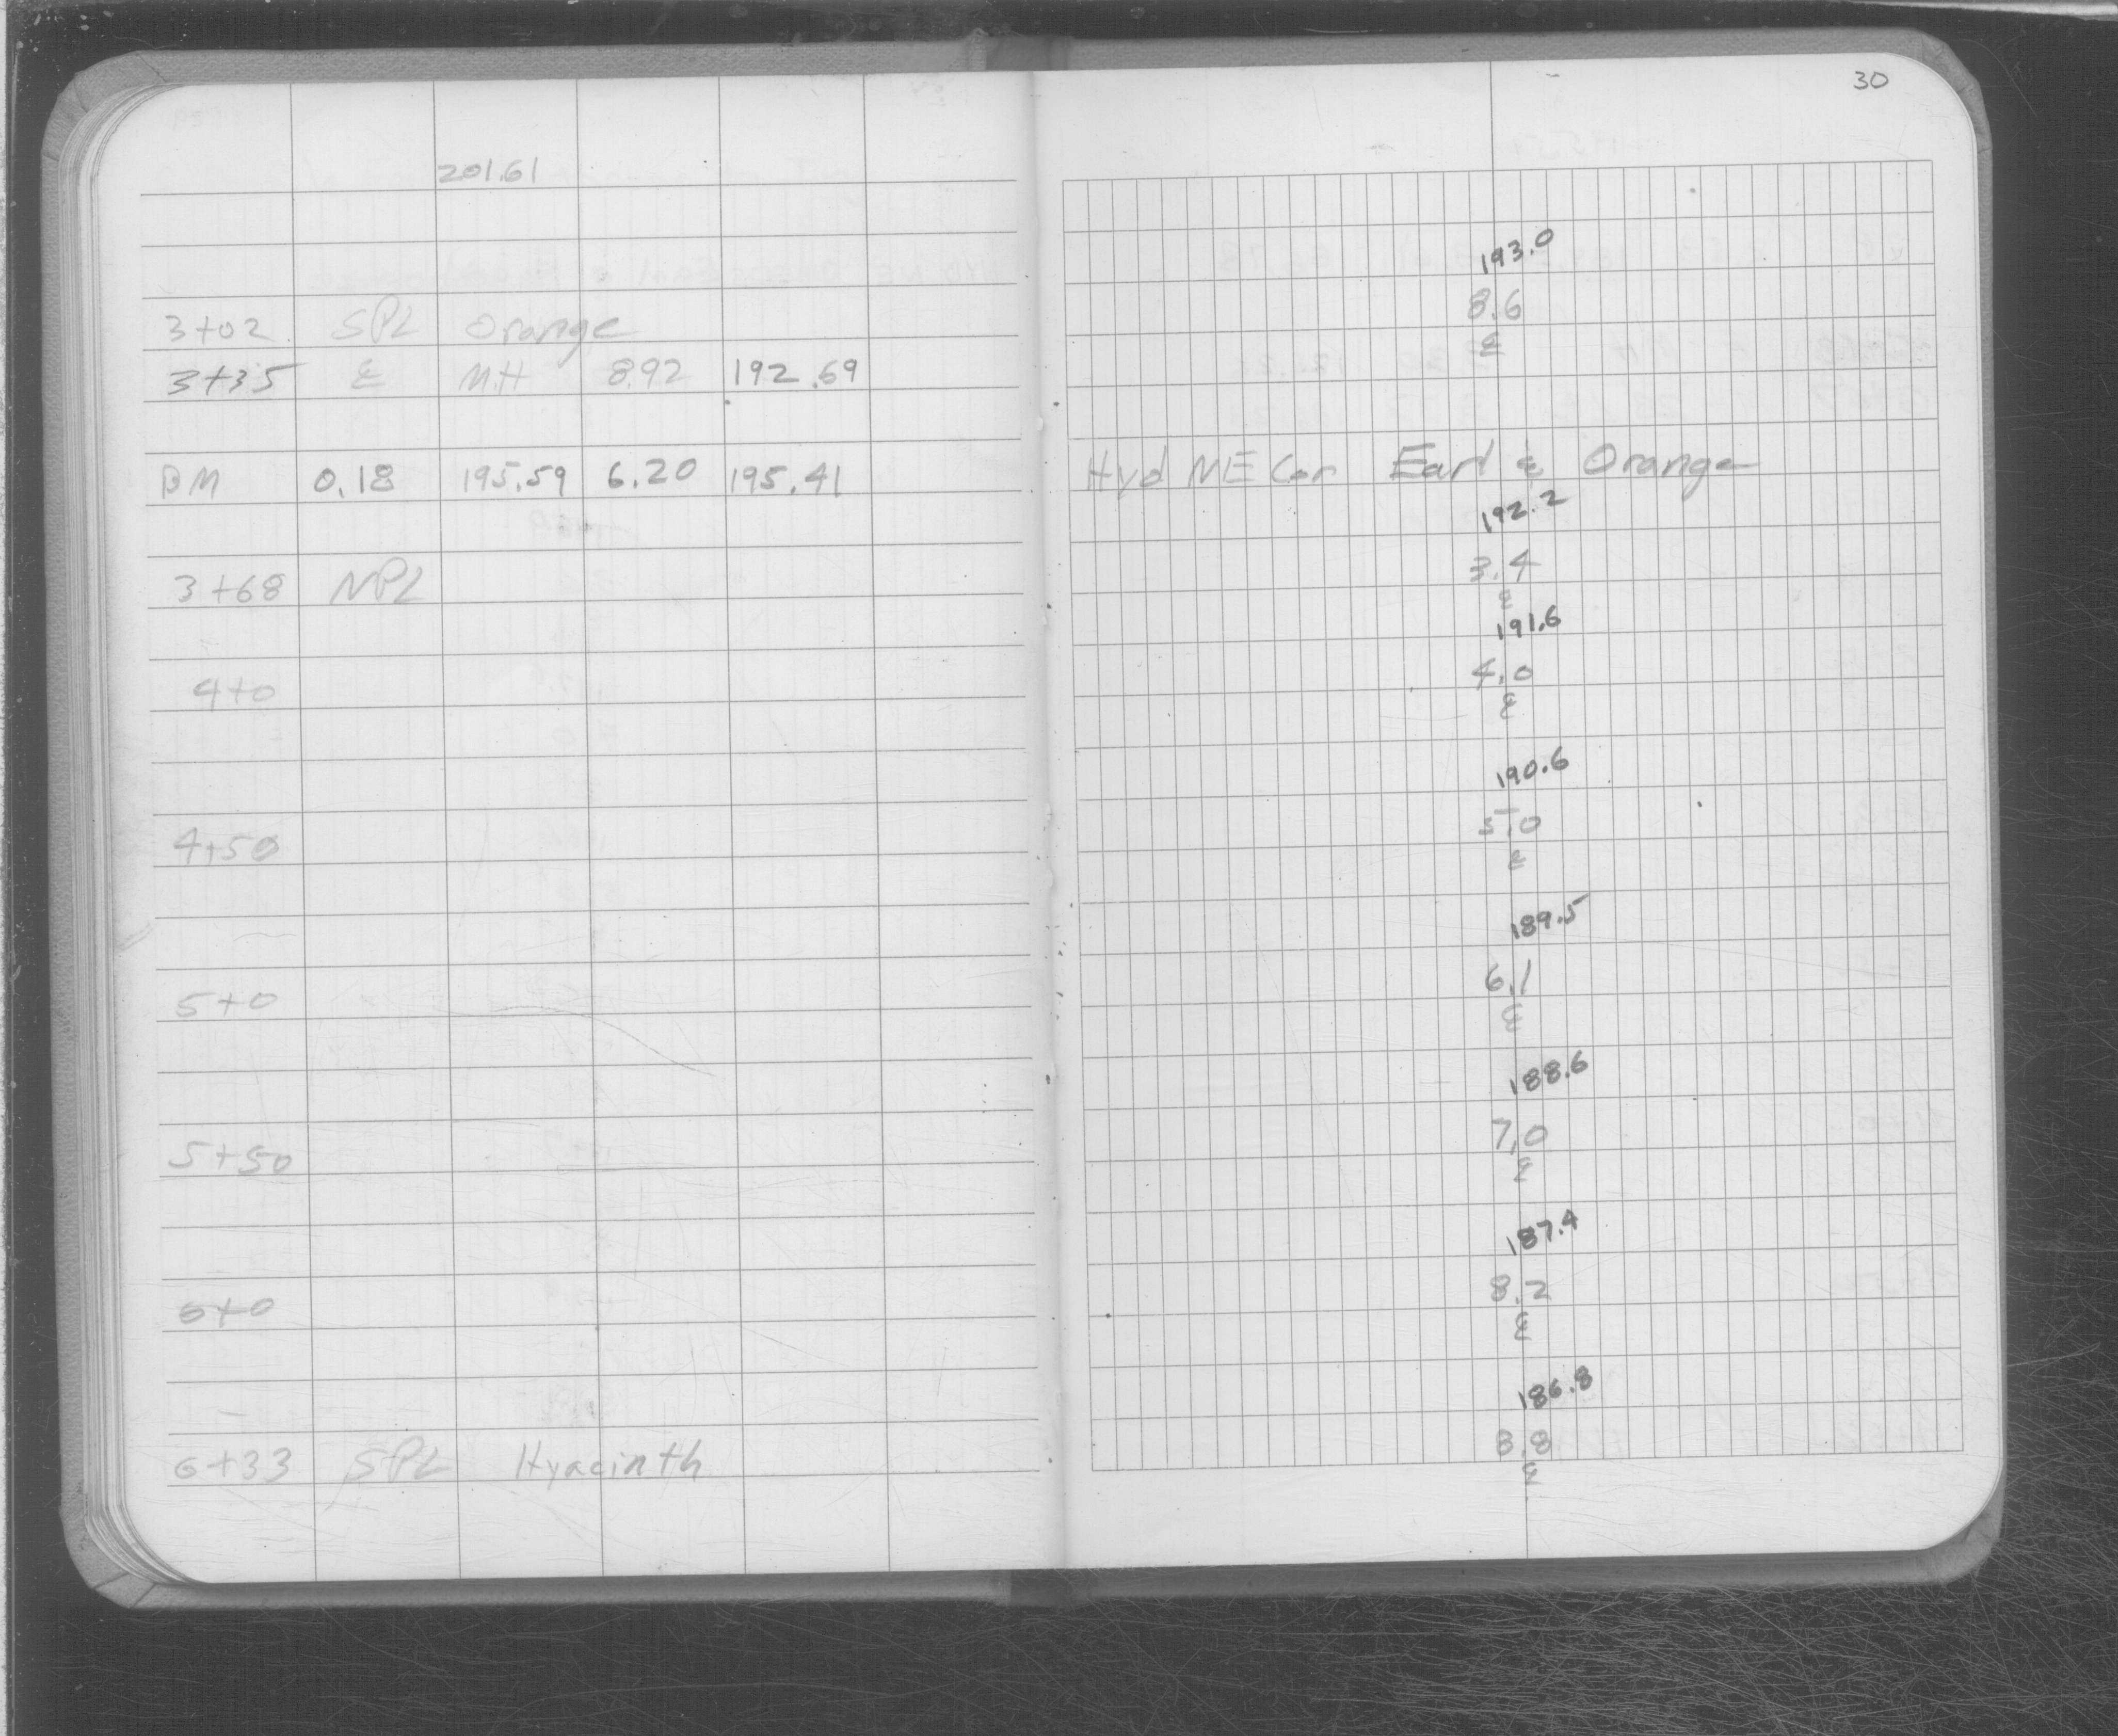 30
201.61
193.0
3+02 SPL Orange 8.6
℄
3+35 ℄ M.H 8.92 192.69
BM 0.18 195.59 6.20 195.41 Hyd NE Cor Earl & Orange
192.2
3+68 NPL 3.4
℄
191.6
4+0 4.0
℄
190.6
4+50 5.0
℄
189.5
5+0 6.1
℄
188.6
5+50 7.0
℄
187.4
6+0 8.2
℄
186.8
6+33 SPL Hyacinth 8.8
℄